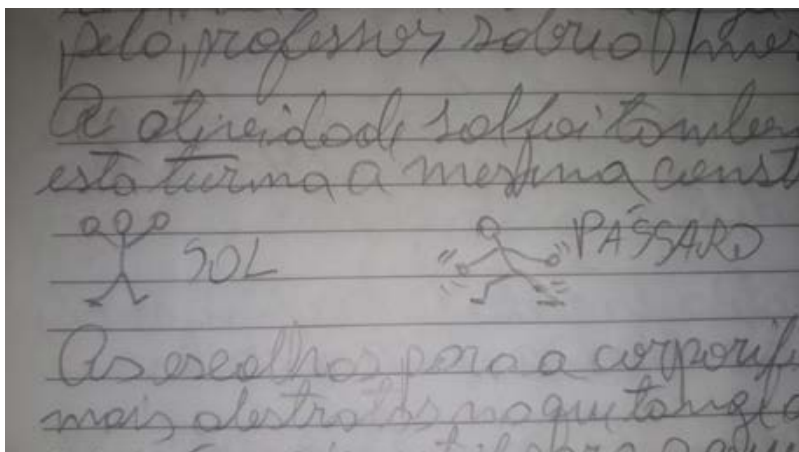 pelo professor, sobre o
A atividade sol foi também
esta turma a mesma const
SOL PÁSSARO
As escolhas para a corporif
mais abstratas no que tange a